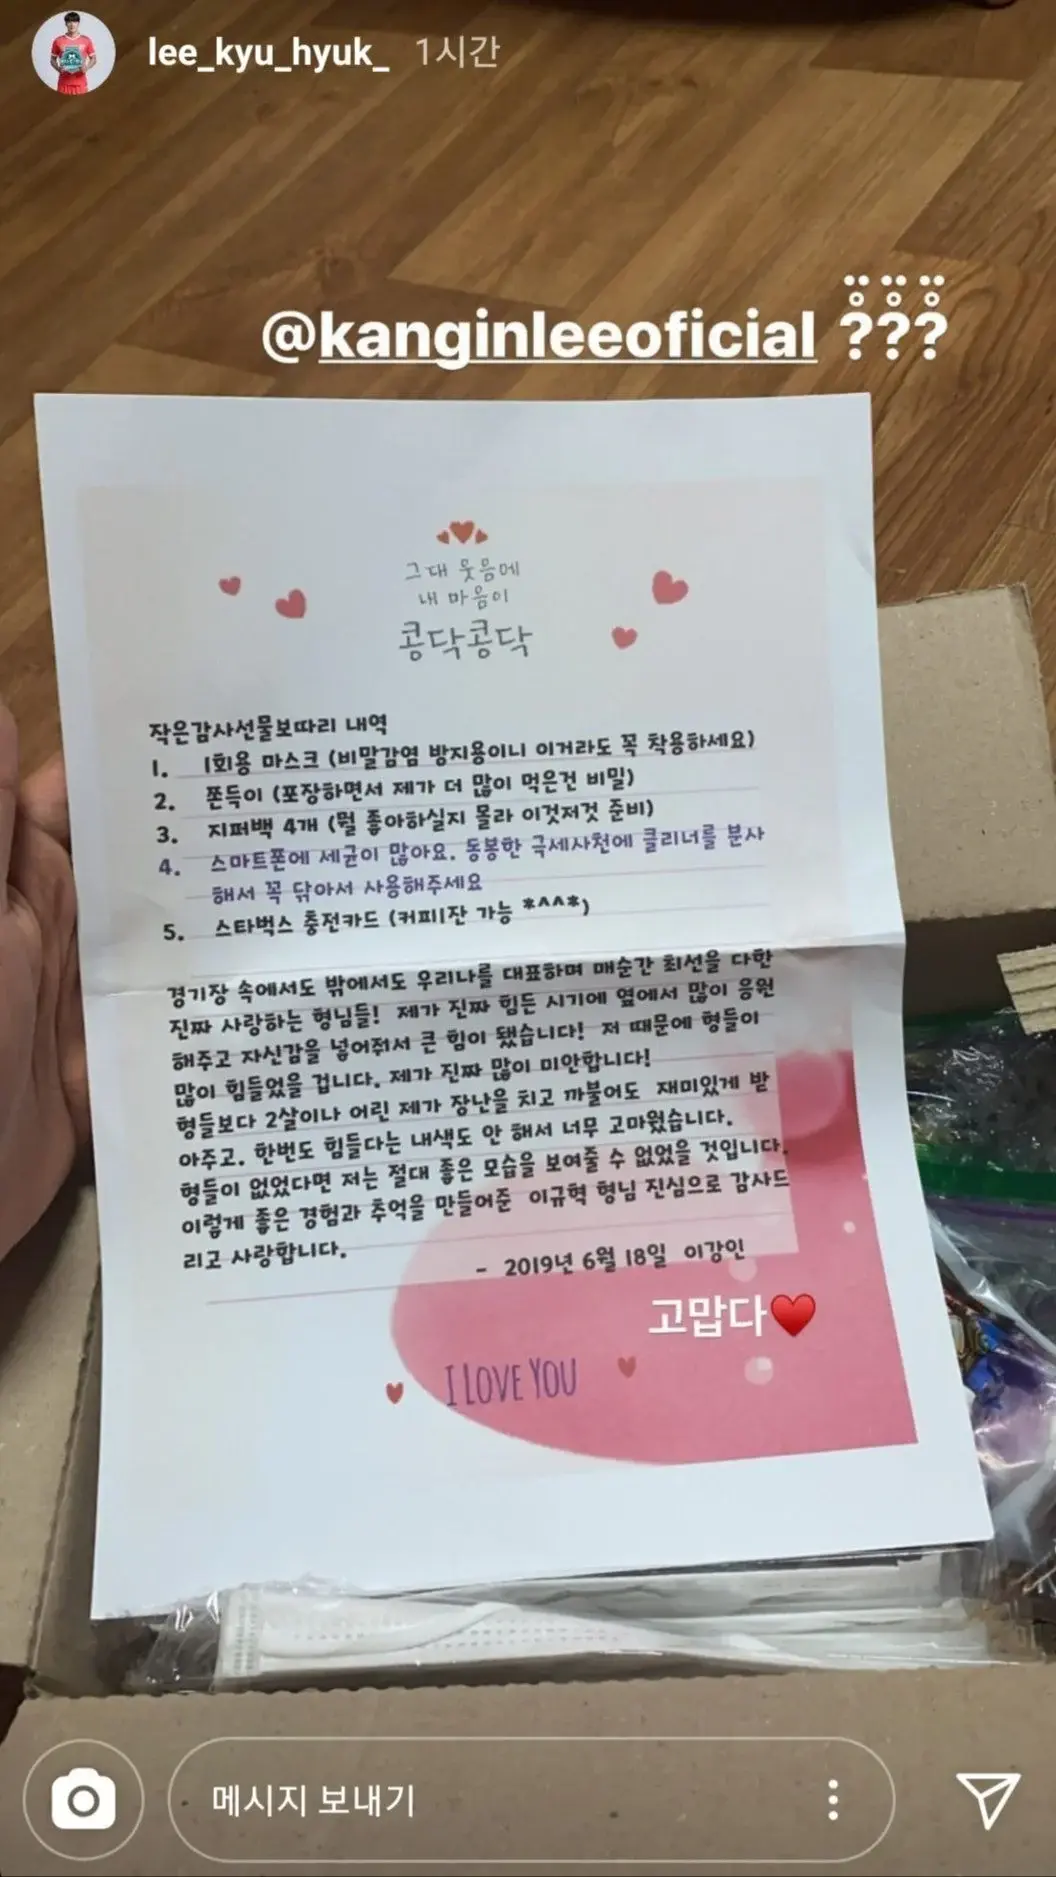 lee_kyu_hyuk_ 1시간
@kanginleeoficial
그대 웃음에
내 마음이
콩닥콩닥
작은감사선물보따리 내역
1. 1회용 마스크 (비말감염 방지용이니 이거라도 꼭 착용하세요)
2. 쫀득이 (포장하면서 제가 더 많이 먹은건 비밀)
3. 지퍼백 4개 (뭘 좋아하실지 몰라 이것저것 준비)
4. 스마트폰에 세균이 많아요. 동봉한 극세사천에 클리너를 분사
해서 꼭 닦아서 사용해주세요
5. 스타벅스 충전카드 (커피1잔 가능 *^^*)
경기장 속에서도 밖에서도 우리나를 대표하며 매순간 최선을 다한
진짜 사랑하는 형님들! 제가 진짜 힘든 시기에 옆에서 많이 응원
해주고 자신감을 넣어줘서 큰 힘이 됐습니다! 저 때문에 형들이
많이 힘들었을 겁니다. 제가 진짜 많이 미안합니다!
형들보다 2살이나 어린 제가 장난을 치고 까불어도 재미있게 받
아주고. 한번도 힘들다는 내색도 안 해서 너무 고마웠습니다.
형들이 없었다면 저는 절대 좋은 모습을 보여줄 수 없었을 것입니다.
이렇게 좋은 경험과 추억을 만들어준 이규혁 형님 진심으로 감사드
리고 사랑합니다.
- 2019년 6월 18일 이강인
고맙다♥
I LOVE YOU
메시지 보내기